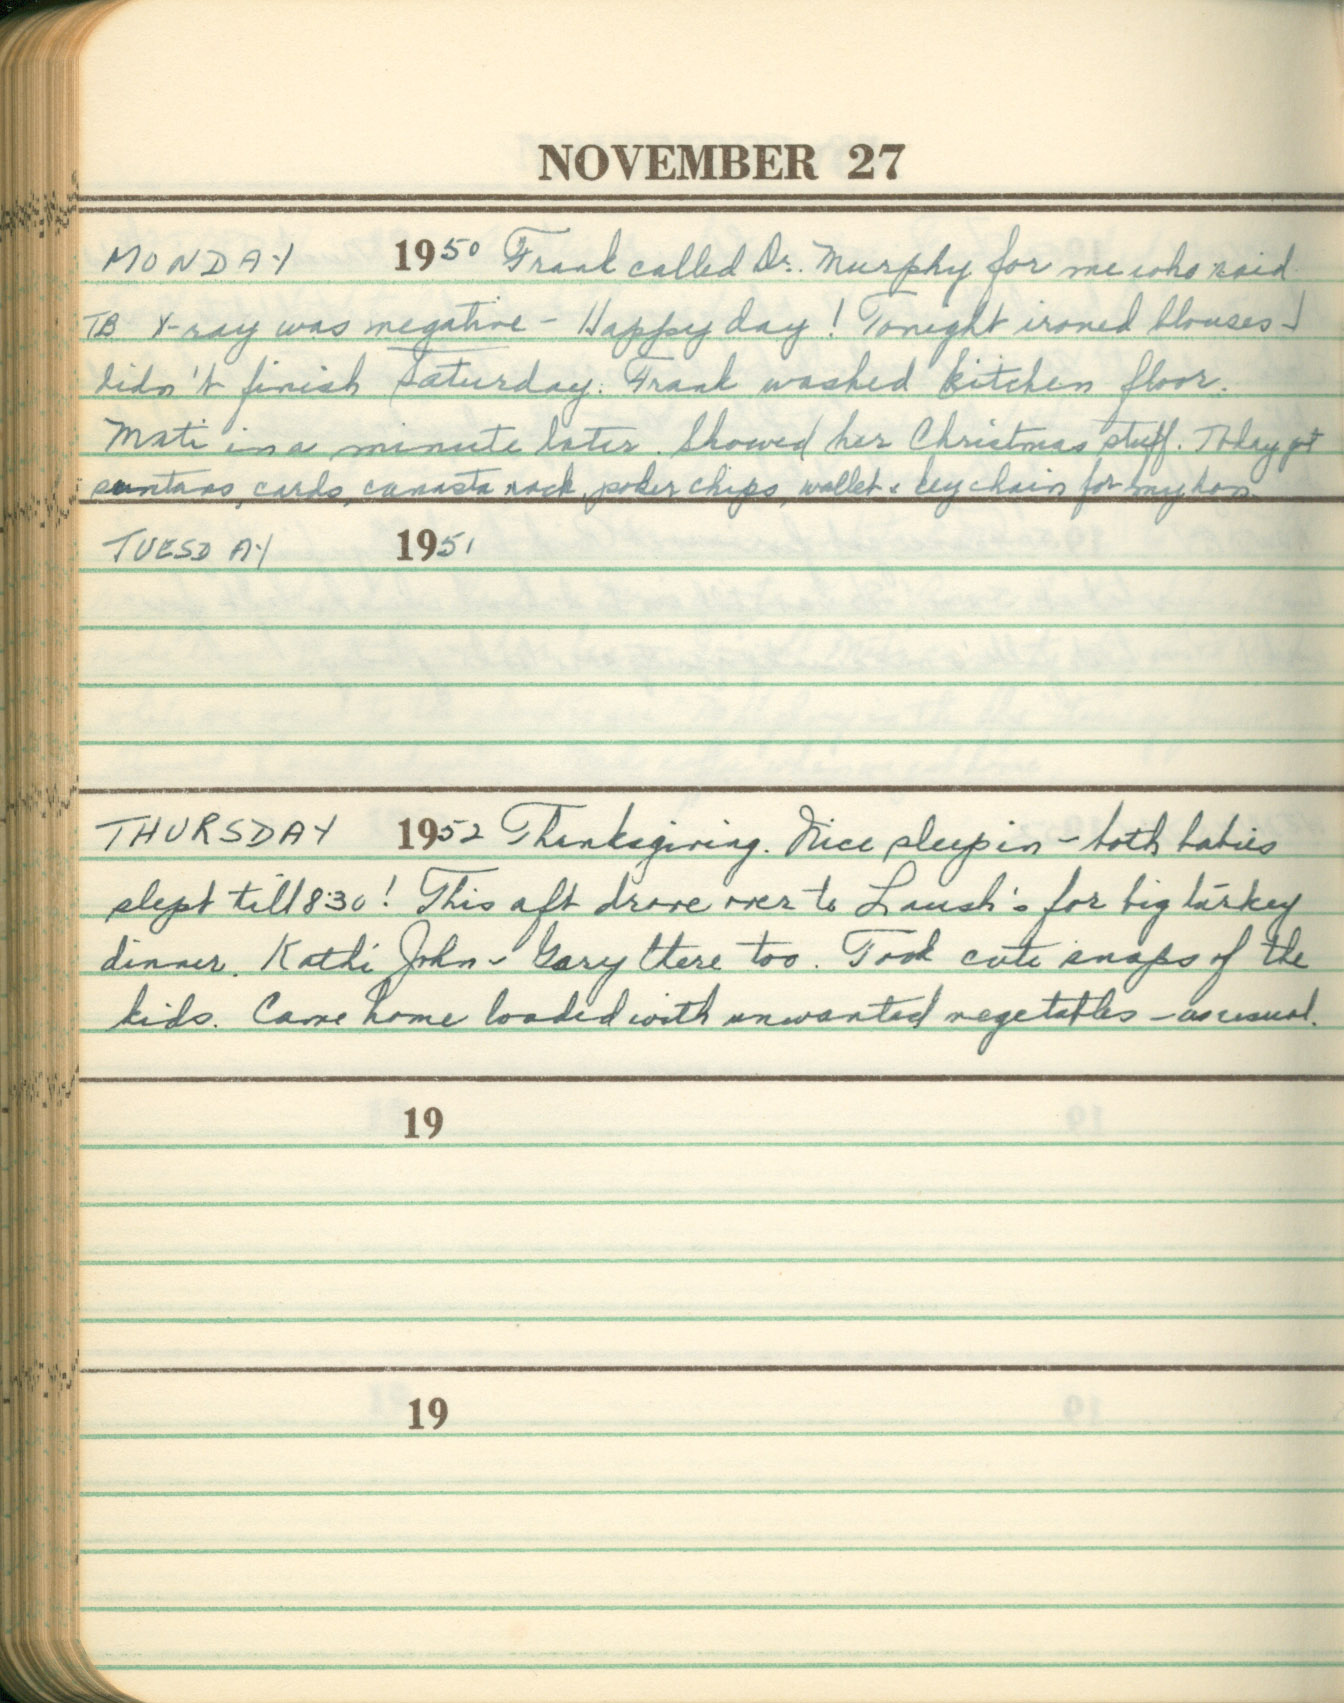 NOVEMBER 27
MONDAY 1950 Frank called Dr. Murphy for me who said
TB X-ray was negative - Happy day! Tonight ironed blouses I
didn't finish Saturday. Frank washed kitchen floor.
Mati in a minute later. Showed her Christmas stuff. Today got
cards, canasta rack, poker chips, wallet & key chain for my hon.
TUESDAY 1951
THURSDAY 1952 Thanksgiving. Nice sleep in - both babies
slept till 8:30! This aft drove over to Laush's for big turkey
dinner. Kathi John - Gary there too. Took cute snaps of the
kids. Came home loaded with unwanted vegetables - as usual.
19
19